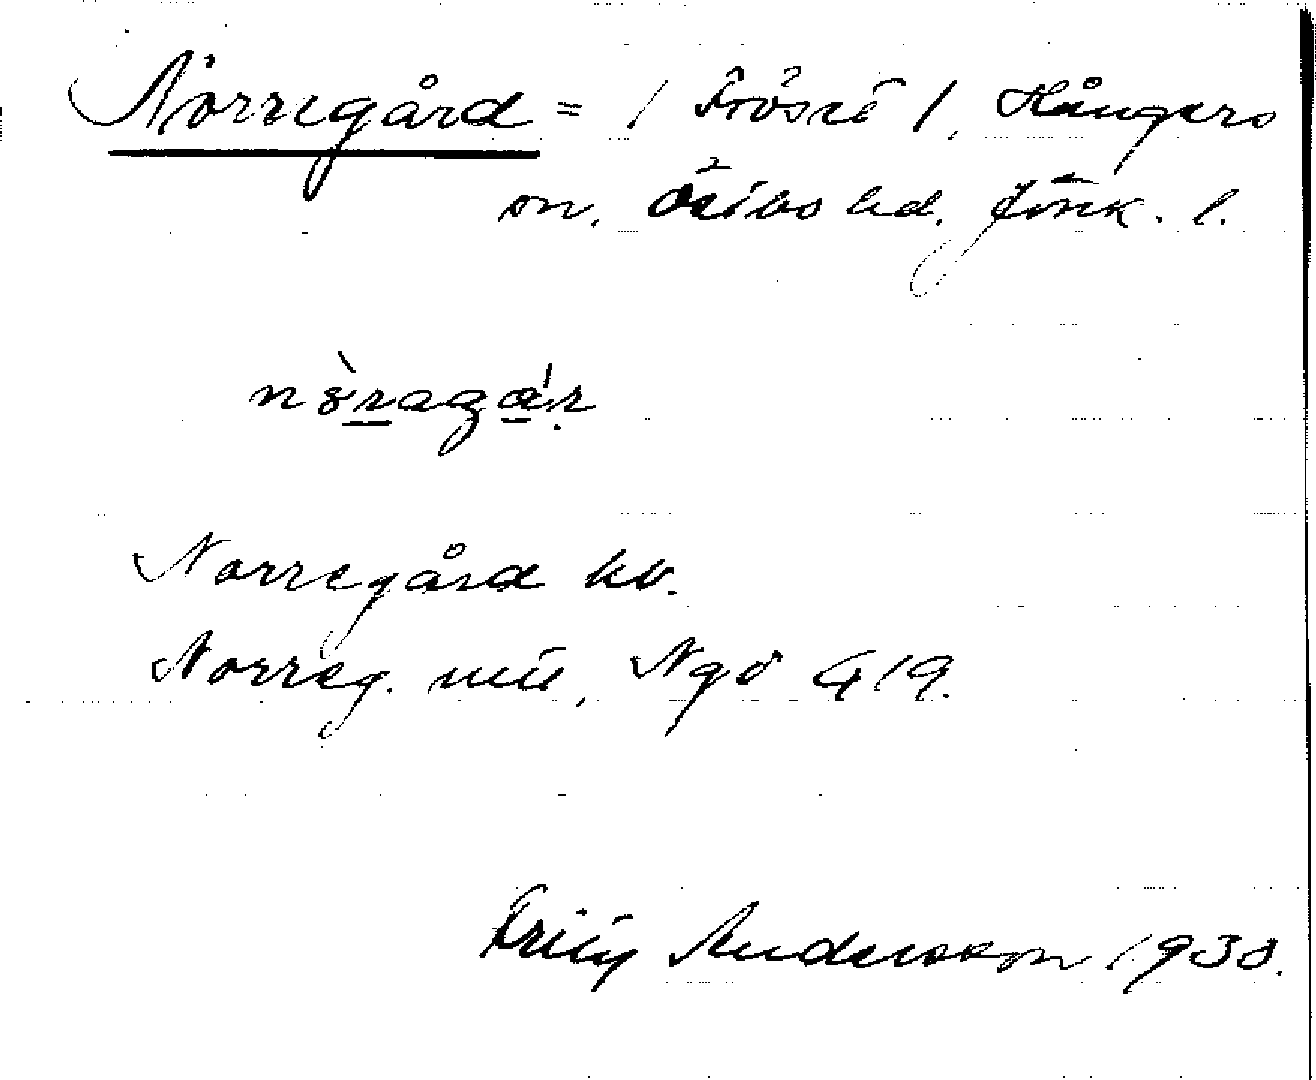 Norregård = / Frösiö 1, Hångers
sn, Östbo hd, Jönk. l.
nòragár
Norregård kb.
Norreg. mtl, Ngö 419.
Fritz Andersson 1938.